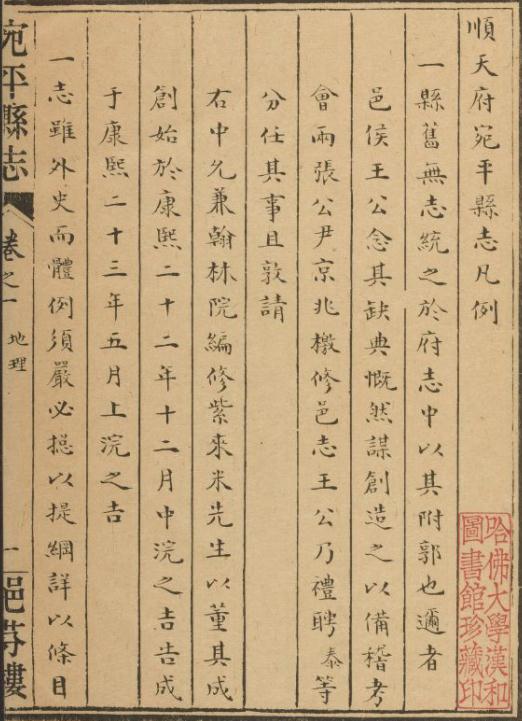 順天府宛平縣志凡例
一縣舊無志統之於府志中以其附郭也邇者
邑侯王公念其缺典慨然謀創造之以備稽考
會兩張公尹京兆檄修邑志王公乃禮聘泰等
分任其事且敦請
右中允兼翰林院編修紫來米先生以董其成
創始於康熙二十二年十二月中浣之吉告成
于康熙二十三年五月上浣之吉
一志雖外史而體例須嚴必挩以提綱詳以條目
宛平縣志
卷之一
地理
一
哈佛大學漢和
圖書館珍藏印